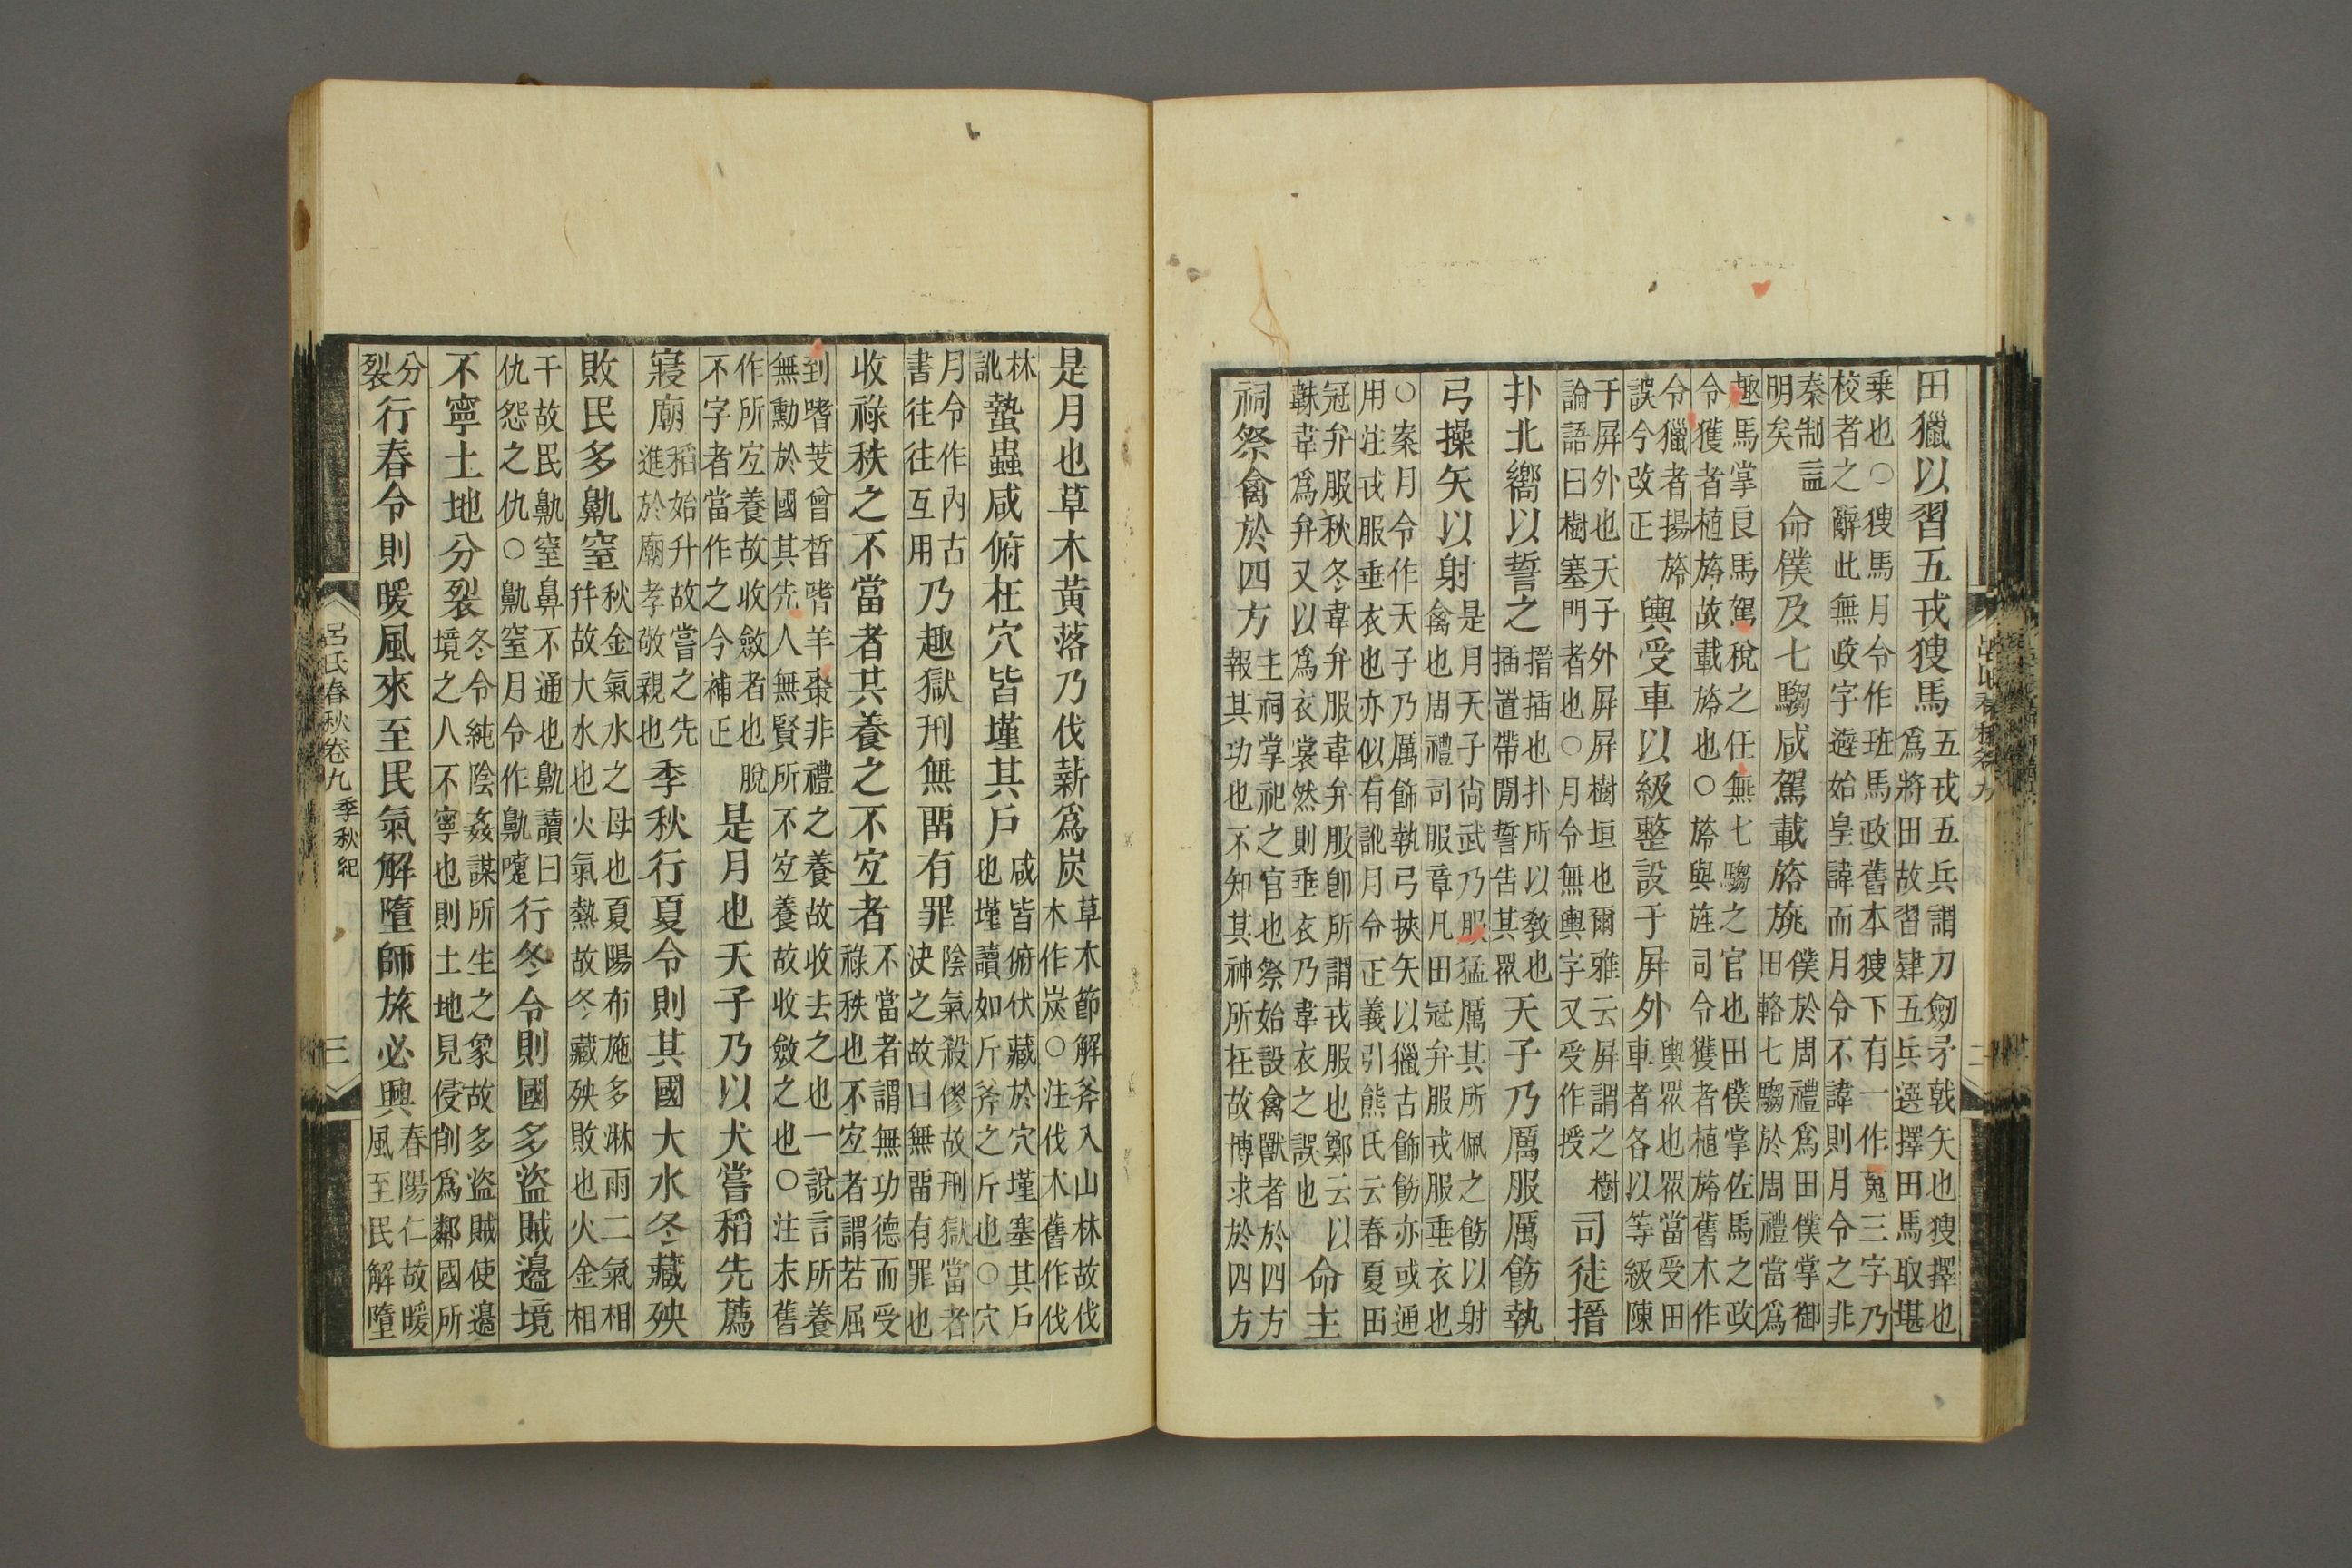 田獵以習五戎獀馬五戎五兵謂刀劒矛戟矢也獀擇也爲將田故習肄五兵選擇田馬取堪
乗也○獀馬月令作班馬政舊本獀下有一作蒐三字乃校者之辭此無政字避始皇諱而月令不諱則月令之非
秦制益明矣命僕及七騶咸駕載旍旐僕於周禮爲田僕掌御田輅七騶於周禮當爲
趣馬掌良馬駕稅之任無七騶之官也田僕掌佐馬之政令獲者植旍故載旍也○旍與旌同令獲者植旍舊木作
令獵者揚旍誤今改正輿受車以級整設于屏外輿眾也眾當受田車者各以等級陳
于屏外也天子外屏屏樹垣也爾雅云屏謂之樹論語曰樹塞門者也○月令無輿字又受作授司徒搢
扑北嚮以誓之搢插也扑所以敎也插置帶閒誓告其眾天子乃厲服厲飭執
弓操矢以射是月天子尙武乃服猛厲其所佩之飭以射禽也周禮司服章凡田冠弁服戎服垂衣也
○案月令作天子乃厲飾執弓挾矢以獵古飾飭亦或通用注戎服垂衣也亦似有訛月令正義引熊氏云春夏田
冠弁服秋冬韋弁服韋弁服卽所謂戎服也鄭云以韎韋爲弁又以爲衣裳然則垂衣乃韋衣之誤也命主
祠祭禽於四方主祠掌祀之官也祭始設禽獸者於四方報其功也不知其神所在故博求於四方
是月也草木黃落乃伐薪爲炭草木節解斧入山林故伐木作炭○注伐木舊作伐
林訛蟄蟲咸俯在穴皆墐其戶咸皆俯伏藏於穴墐塞其戶也墐讀如斤斧之斤也○穴
月令作內古書往往互用乃趣獄刑無畱有罪陰氣殺僇故刑獄當者決之故曰無畱有罪也
收祿秩之不當者共養之不宜者不當者謂無功德而受祿秩也不宜者謂若屈
到嗜芰曾晳嗜羊棗非禮之養故收去之也一說言所養無勳於國其先人無賢所不宜養故收斂之也○注末舊
作所宜養故收斂者也脫不字者當作之今補正是月也天子乃以犬嘗稻先薦
寢廟稻始升故嘗之先進於廟孝敬親也季秋行夏令則其國大水冬藏殃
敗民多鼽窒秋金氣水之母也夏陽布施多淋雨二氣相幷故大水也火氣熱故冬藏殃敗也火金相
干故民鼽窒鼻不通也鼽讀曰仇怨之仇○鼽窒月令作鼽嚏行冬令則國多盜賊邊境
不寧土地分裂冬令純陰姦謀所生之象故多盜賊使邊境之人不寧也則土地見侵削爲鄰國所
分裂行春令則暖風來至民氣解墮師旅必興春陽仁故暖風至民解墮
呂氏春秋卷九 季秋紀 三